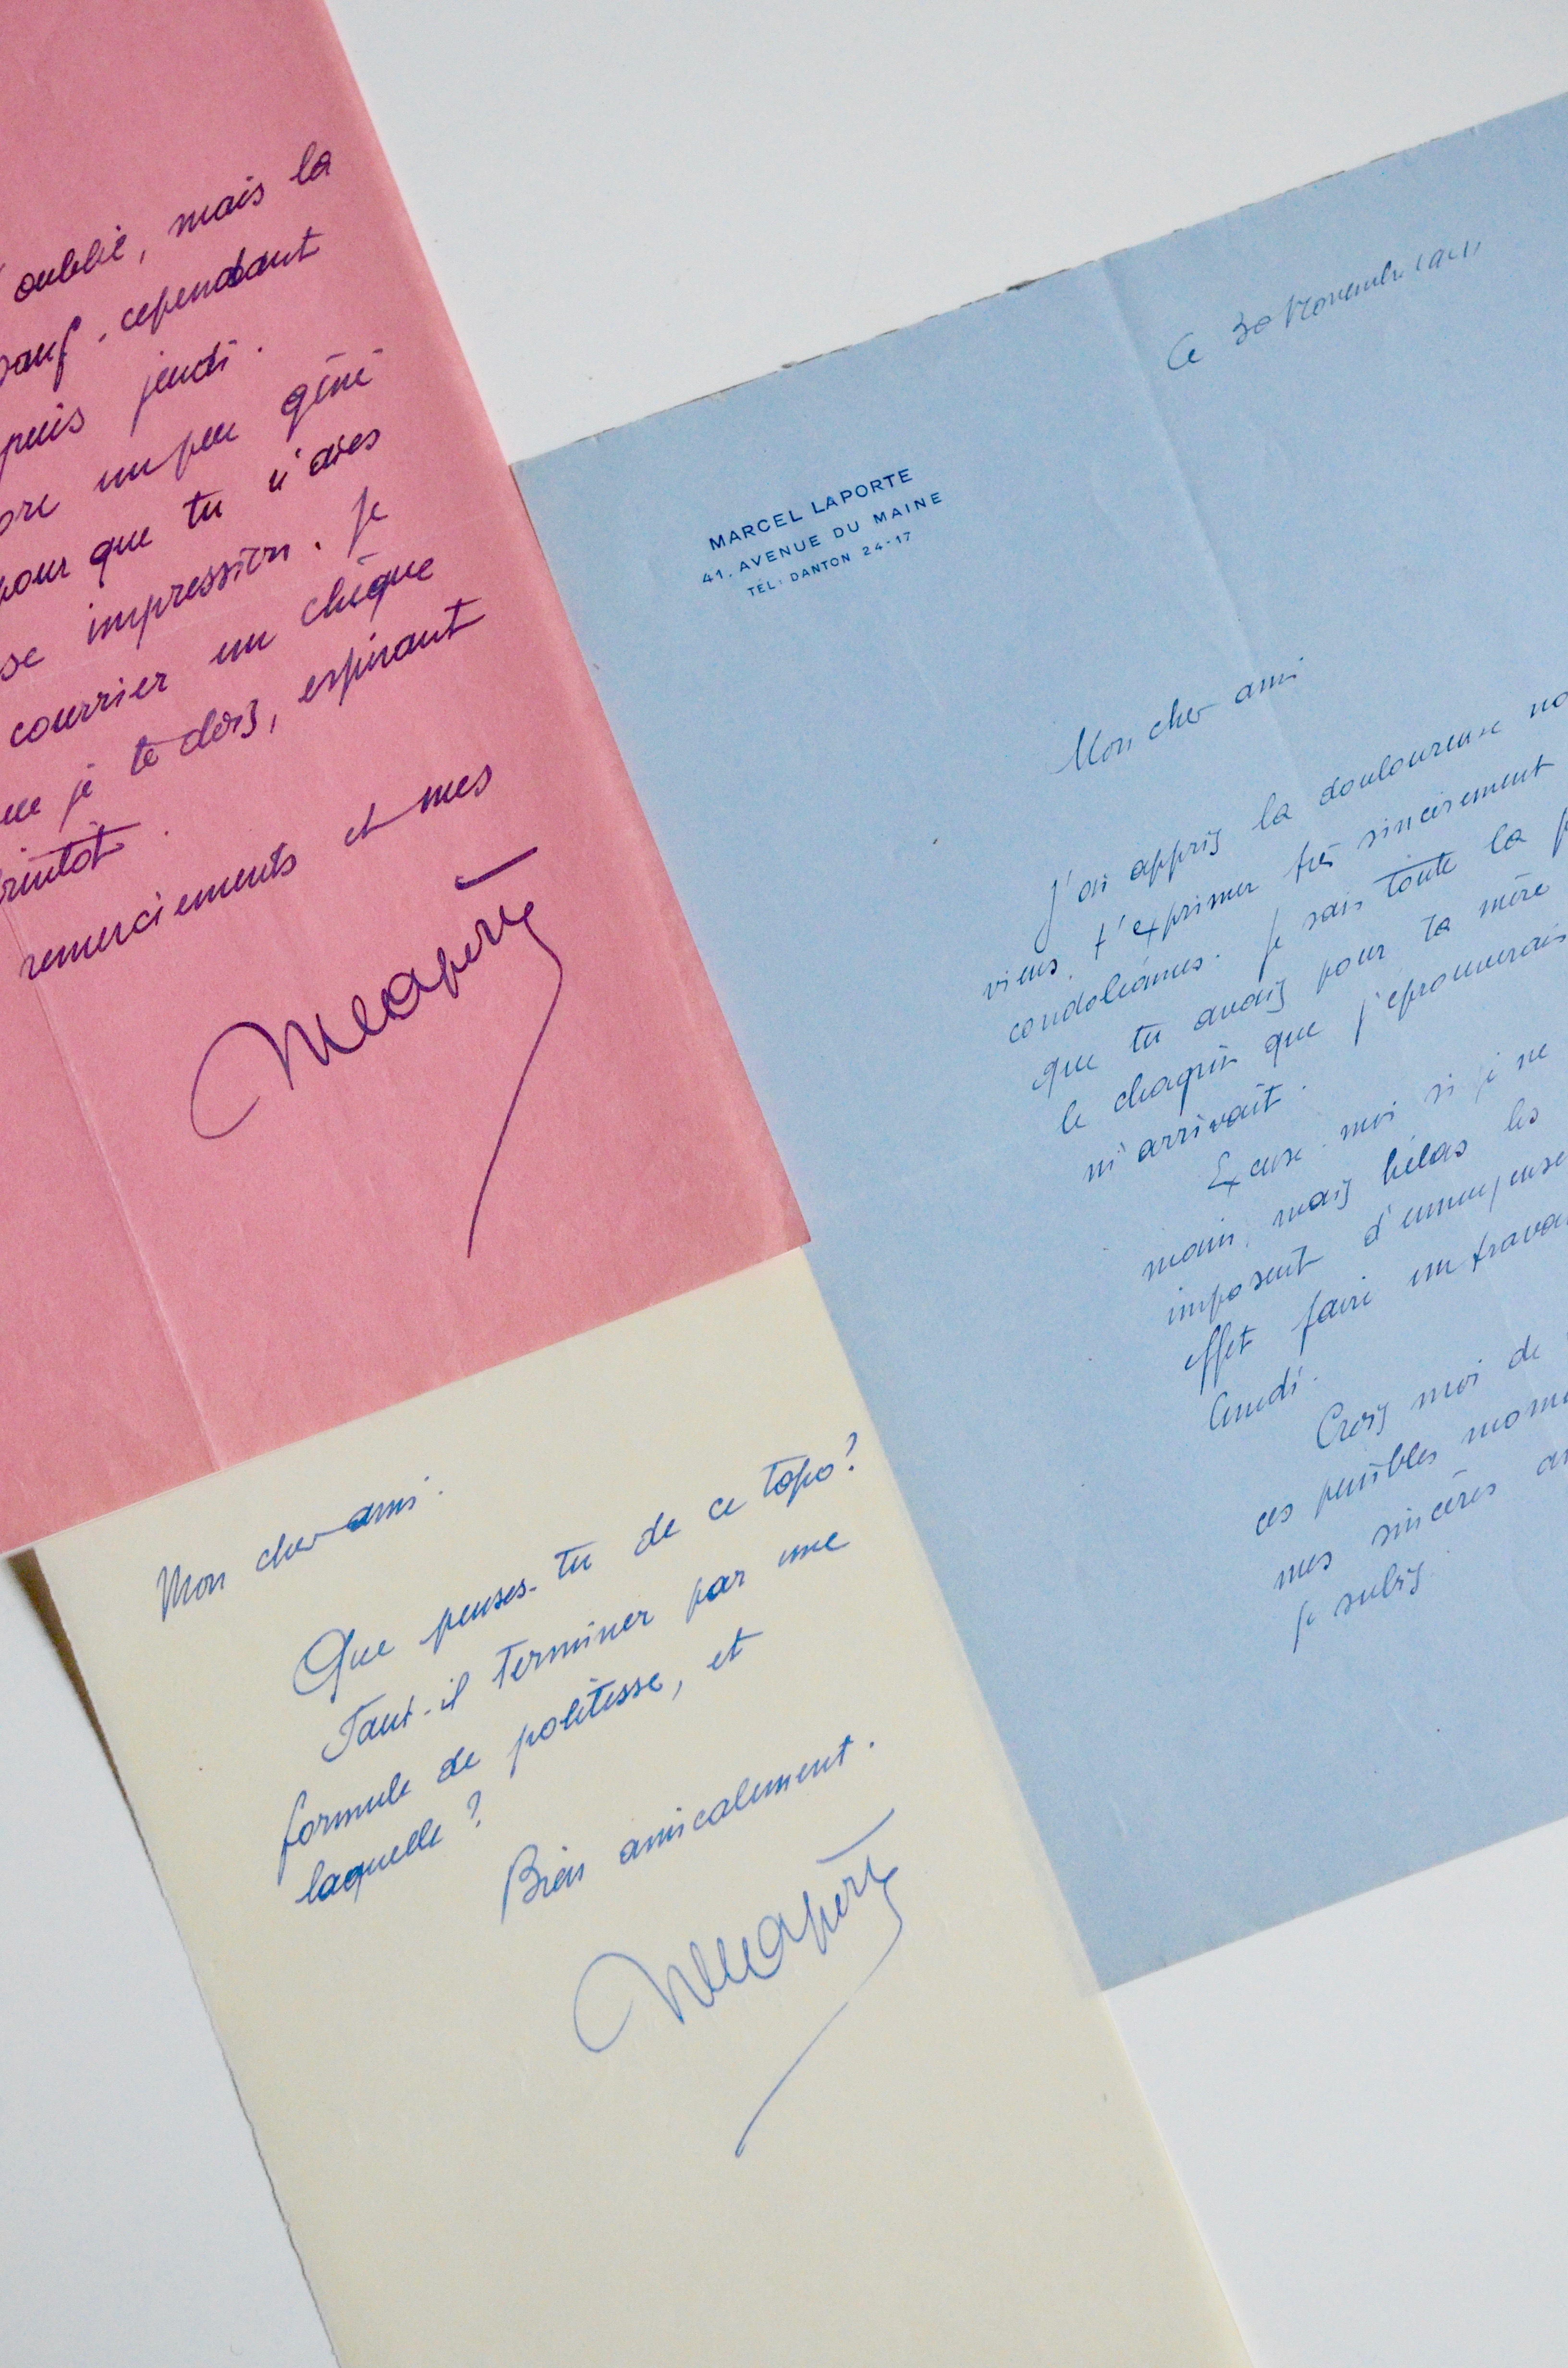 oublié, mais la
sauf. cependant
puis jeudi.
un peu gêné
pour que tu n'aies
se impression. Je
courrier un chèque
que je te dois, espérant
bientôt.
remerciements et mes
MLaporte
MARCEL LAPORTE
41, AVENUE DU MAINE
TÉL: DANTON 24-17
Ce 30 Novembre
Mon cher ami
J'ai appris la douloureuse no
viens t'exprimer très sincèrement
condoléances. Je sais toute la p
que tu avais pour ta mère
le chagrin que j'éprouverais
m'arrivait.
Excuse-moi si je ne
main, mais hélas les
imposent d'ennuyeuse
effet faire un trava
lundi.
Crois moi de
ces pénibles mome
mes sincères am
Je subis.
Mon cher ami.
Que penses-tu de ce topo?
Faut-il terminer par une
formule de politesse, et
laquelle?
Bien amicalement.
MLaporte